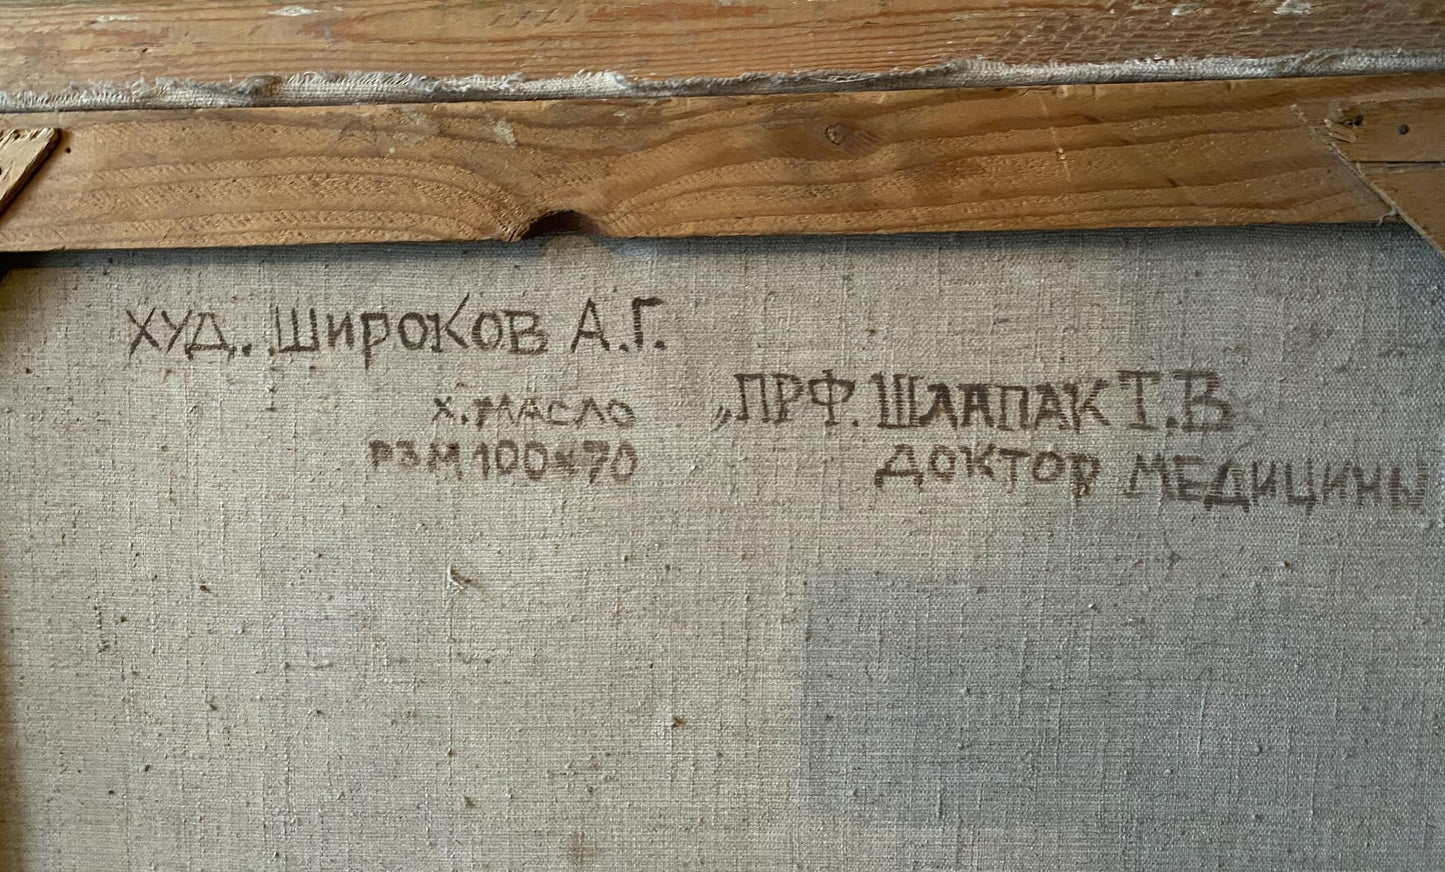 ХУД. ШИРОКОВ А.Г.
Х. МАСЛО
РЗМ 100x70
„ПРФ. ШЛАПАК Т.В
ДОКТОР МЕДИЦИНЫ